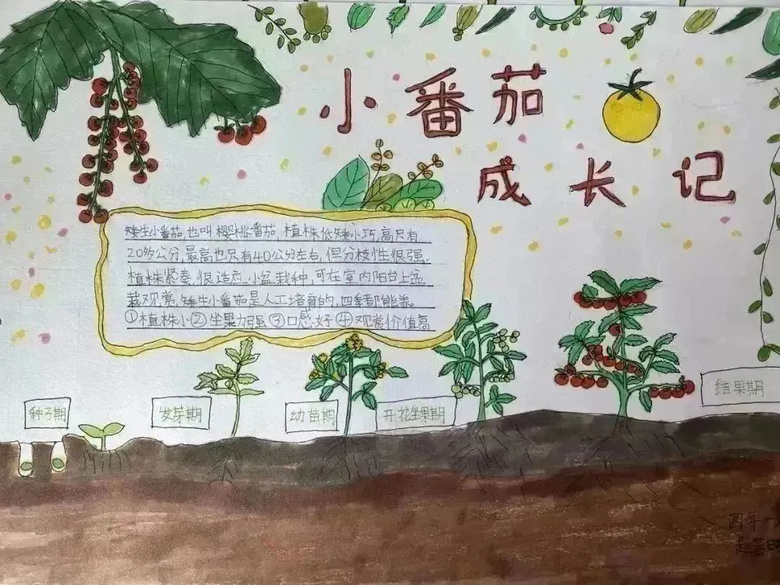 小番茄
成长记
矮生小番茄,也叫樱桃番茄,植株低矮小巧,高只有
20多公分,最高也只有40公分左右,但分枝性很强,
植株紧凑,很适应小盆栽种,可在室内阳台上盆
栽观赏,矮生小番茄是人工培育的,四季都能栽
①植株小②坐果力强③口感好④观赏价值高
种子期
发芽期
幼苗期
开花坐果期
结果期
四年一